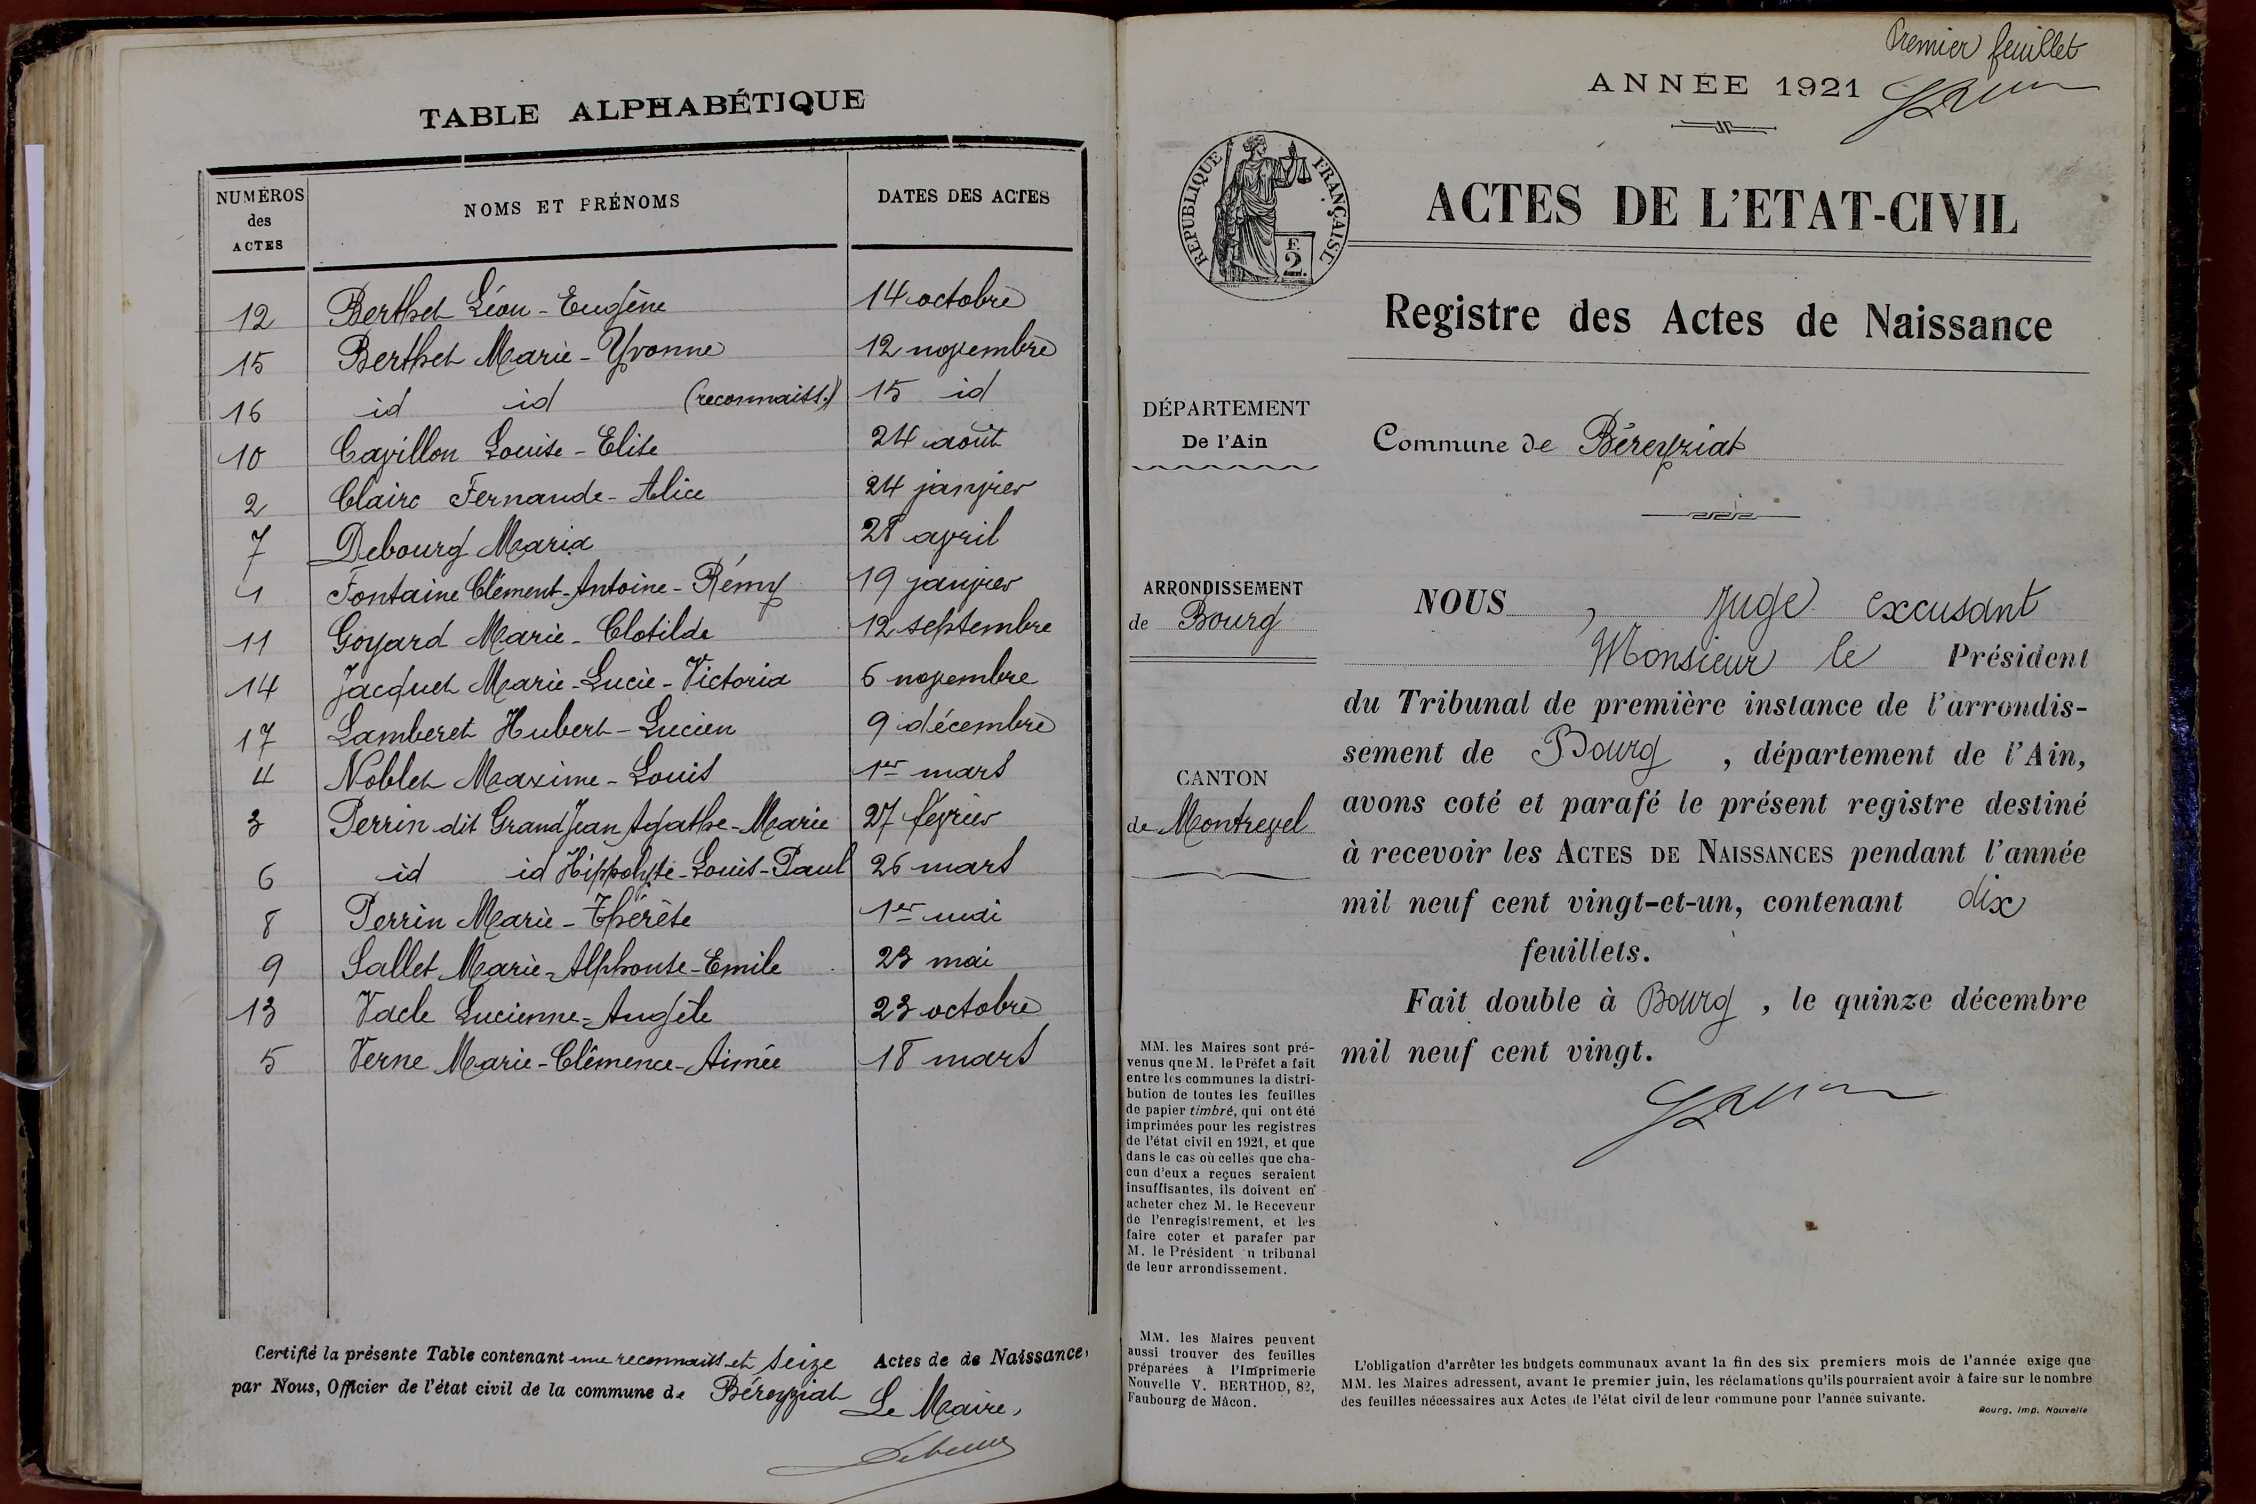 TABLE ALPHABÉTIQUE
NUMÉROS des ACTES NOMS ET PRÉNOMS DATES DES ACTES
12 Berthet Léon - Eugène 14 octobre
15 Berthet Marie - Yvonne 12 novembre
16 id id (reconnaiss.) 15 id
10 Cavillon Louise - Elise 24 août
2 Claire Fernande - Alice 24 janvier
7 Debourg Maria 28 avril
1 Fontaine Clément - Antoine - Rémy 19 janvier
11 Goyard Marie - Clotilde 12 septembre
14 Jacquet Marie - Lucie - Victoria 6 novembre
17 Lamberet Hubert - Lucien 9 décembre
4 Noblet Maxime - Louis 1er mars
3 Perrin dit Grand Jean Agathe - Marie 27 février
6 id id Hippolyte - Louis - Paul 26 mars
8 Perrin Marie - Thérèse 1er mai
9 Sallet Marie - Alphonse - Emile 23 mai
13 Vacle Lucienne - Angèle 23 octobre
5 Verne Marie - Clémence - Aimée 18 mars
Certifié la présente Table contenant une reconnaiss et seize Actes de de Naissance,
par Nous, Officier de l'état civil de la commune de Béreyziat
Le Maire,
Premier feuillet
ANNÉE 1921
RÉPUBLIQUE FRANÇAISE
2
ACTES DE L'ETAT-CIVIL
Registre des Actes de Naissance
DÉPARTEMENT
De l'Ain
Commune de Béreyziat
ARRONDISSEMENT
de Bourg
CANTON
de Montrevel
NOUS , juge excusant
Monsieur le Président
du Tribunal de première instance de l'arrondis-
sement de Bourg , département de l'Ain,
avons coté et parafé le présent registre destiné
à recevoir les ACTES DE NAISSANCES pendant l'année
mil neuf cent vingt-et-un, contenant dix
feuillets.
Fait double à Bourg , le quinze décembre
mil neuf cent vingt.
MM. les Maires sont pré-
venus que M. le Préfet a fait
entre les communes la distri-
bution de toutes les feuilles
de papier timbré, qui ont été
imprimées pour les registres
de l'état civil en 1921, et que
dans le cas où celles que cha-
cun d'eux a reçues seraient
insuffisantes, ils doivent en
acheter chez M. le Receveur
de l'enregistrement, et les
faire coter et parafer par
M. le Président u tribunal
de leur arrondissement.
MM. les Maires peuvent
aussi trouver des feuilles
préparées à l'Imprimerie
Nouvelle V. BERTHOD, 82,
Faubourg de Mâcon.
L'obligation d'arrêter les budgets communaux avant la fin des six premiers mois de l'année exige que
MM. les Maires adressent, avant le premier juin, les réclamations qu'ils pourraient avoir à faire sur le nombre
des feuilles nécessaires aux Actes de l'état civil de leur commune pour l'année suivante.
Bourg, Imp. Nouvelle